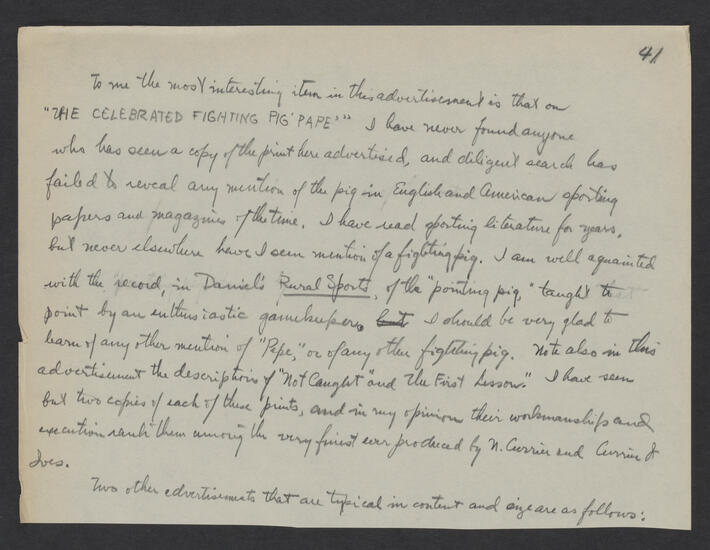 41
To me the most interesting item in this advertisement is that on
"THE CELEBRATED FIGHTING PIG 'PAPE'" I have never found anyone
who has seen a copy of the print here advertised, and diligent search has
failed to reveal any mention of the pig in English and American sporting
papers and magazines of the time. I have read sporting literature for years,
but never elsewhere have I seen mention of a fighting pig. I am well aquainted
with the record, in Daniel's Rural Sports, of the "pointing pig," taught to
point by an enthusiastic gamekeeper. but I should be very glad to
learn of any other mention of "Pepe," or of any other fighting pig. Note also in this
advertisement the descriptions of "Not Caught" and The First Lesson." I have seen
but two copies of each of these prints, and in my opinion their workmanship and
execution rank them among the very finest ever produced by N. Currier and Currier &
Ives.
Two other advertisements that are typical in content and size are as follows: